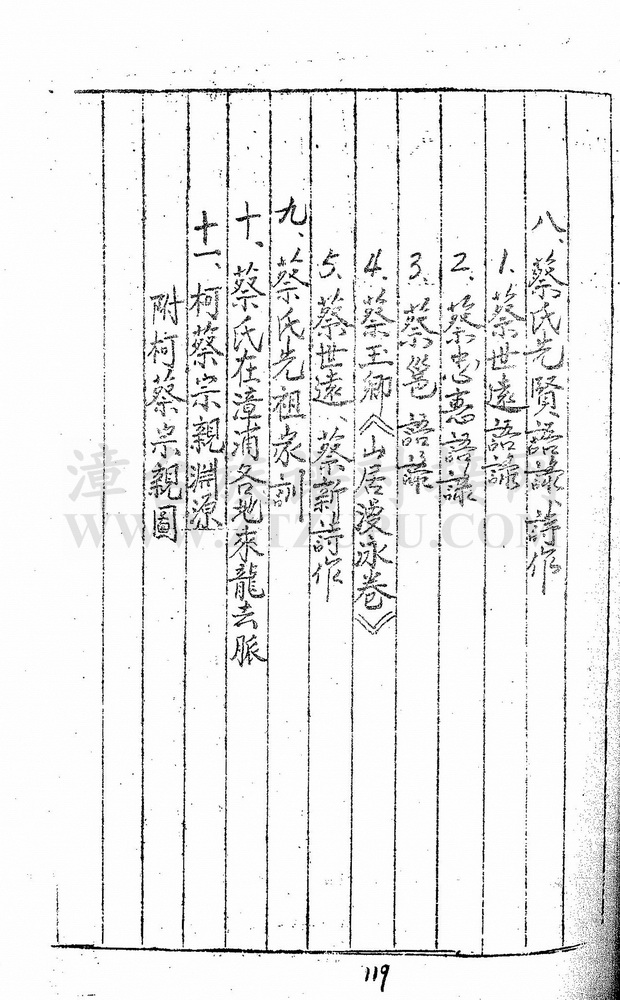 八、蔡氏先賢語錄、詩作
1. 蔡世遠語錄
2. 蔡忠惠語錄
3. 蔡邕語錄
4. 蔡玉卿《山居漫咏卷》
5. 蔡世遠、蔡新詩作
九、蔡氏先祖家訓
十、蔡氏在漳浦各地來龍去脈
十一、柯蔡宗親淵源
附柯蔡宗親圖
119